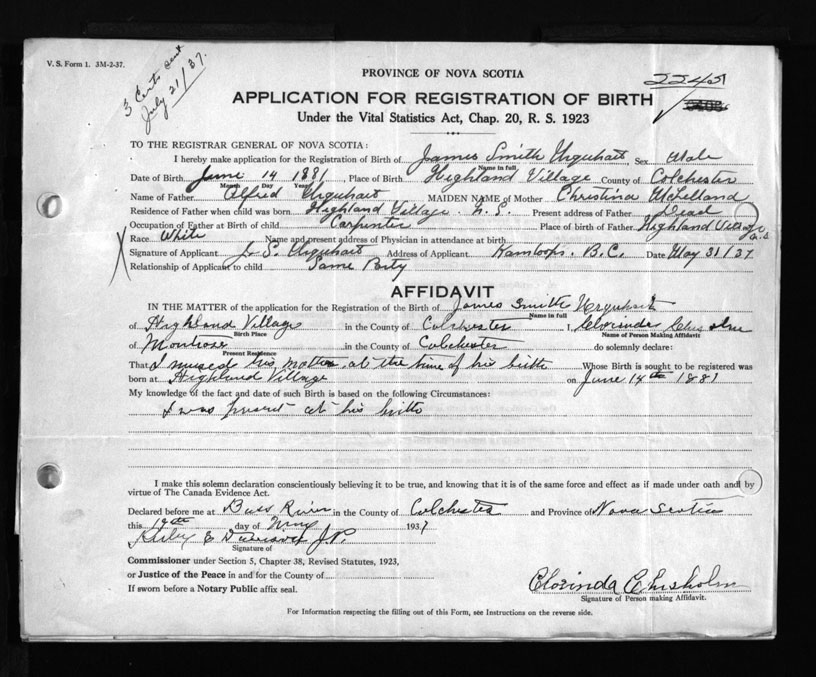 V. S. Form 1. 3M-2-37.
3 Certs sent
July 21/37.
PROVINCE OF NOVA SCOTIA
2245
APPLICATION FOR REGISTRATION OF BIRTH
Under the Vital Statistics Act, Chap. 20, R. S. 1923
TO THE REGISTRAR GENERAL OF NOVA SCOTIA:
I hereby make application for the Registration of Birth of James Smith Urquhart Sex Male
Name in full
Date of Birth June 14 1881, Place of Birth Highland Village County of Colchester
Month Day Year
Name of Father Alfred Urquhart MAIDEN NAME of Mother Christina McLelland
Residence of Father when child was born Highland Village. N. S. Present address of Father Dead
Occupation of Father at Birth of child Carpenter Place of birth of Father Highland Village N.S
Race White Name and present address of Physician in attendance at birth
Signature of Applicant J. S. Urquhart Address of Applicant Kamloops. B.C. Date May 31/37
Relationship of Applicant to child Same Party
AFFIDAVIT
IN THE MATTER of the application for the Registration of the Birth of James Smith Urquhart
Name in full
of Highland Village in the County of Colchester I, Clorinda Chisholm
Birth Place Name of Person Making Affidavit
of Montrose in the County of Colchester do solemnly declare:
Present Residence
That I nursed his mother at the time of his birth Whose Birth is sought to be registered was
born at Highland Village on June 14th 1881
My knowledge of the fact and date of such Birth is based on the following Circumstances:
I was present at his birth
I make this solemn declaration conscientiously believing it to be true, and knowing that it is of the same force and effect as if made under oath and by
virtue of The Canada Evidence Act.
Declared before me at Bass River in the County of Colchester and Province of Nova Scotia
this 19th day of 1937
E J.P.
Signature of
Commissioner under Section 5, Chapter 38, Revised Statutes, 1923,
or Justice of the Peace in and for the County of
If sworn before a Notary Public affix seal.
Clorinda Chisholm
Signature of Person making Affidavit.
For Information respecting the filling out of this Form, see Instructions on the reverse side.